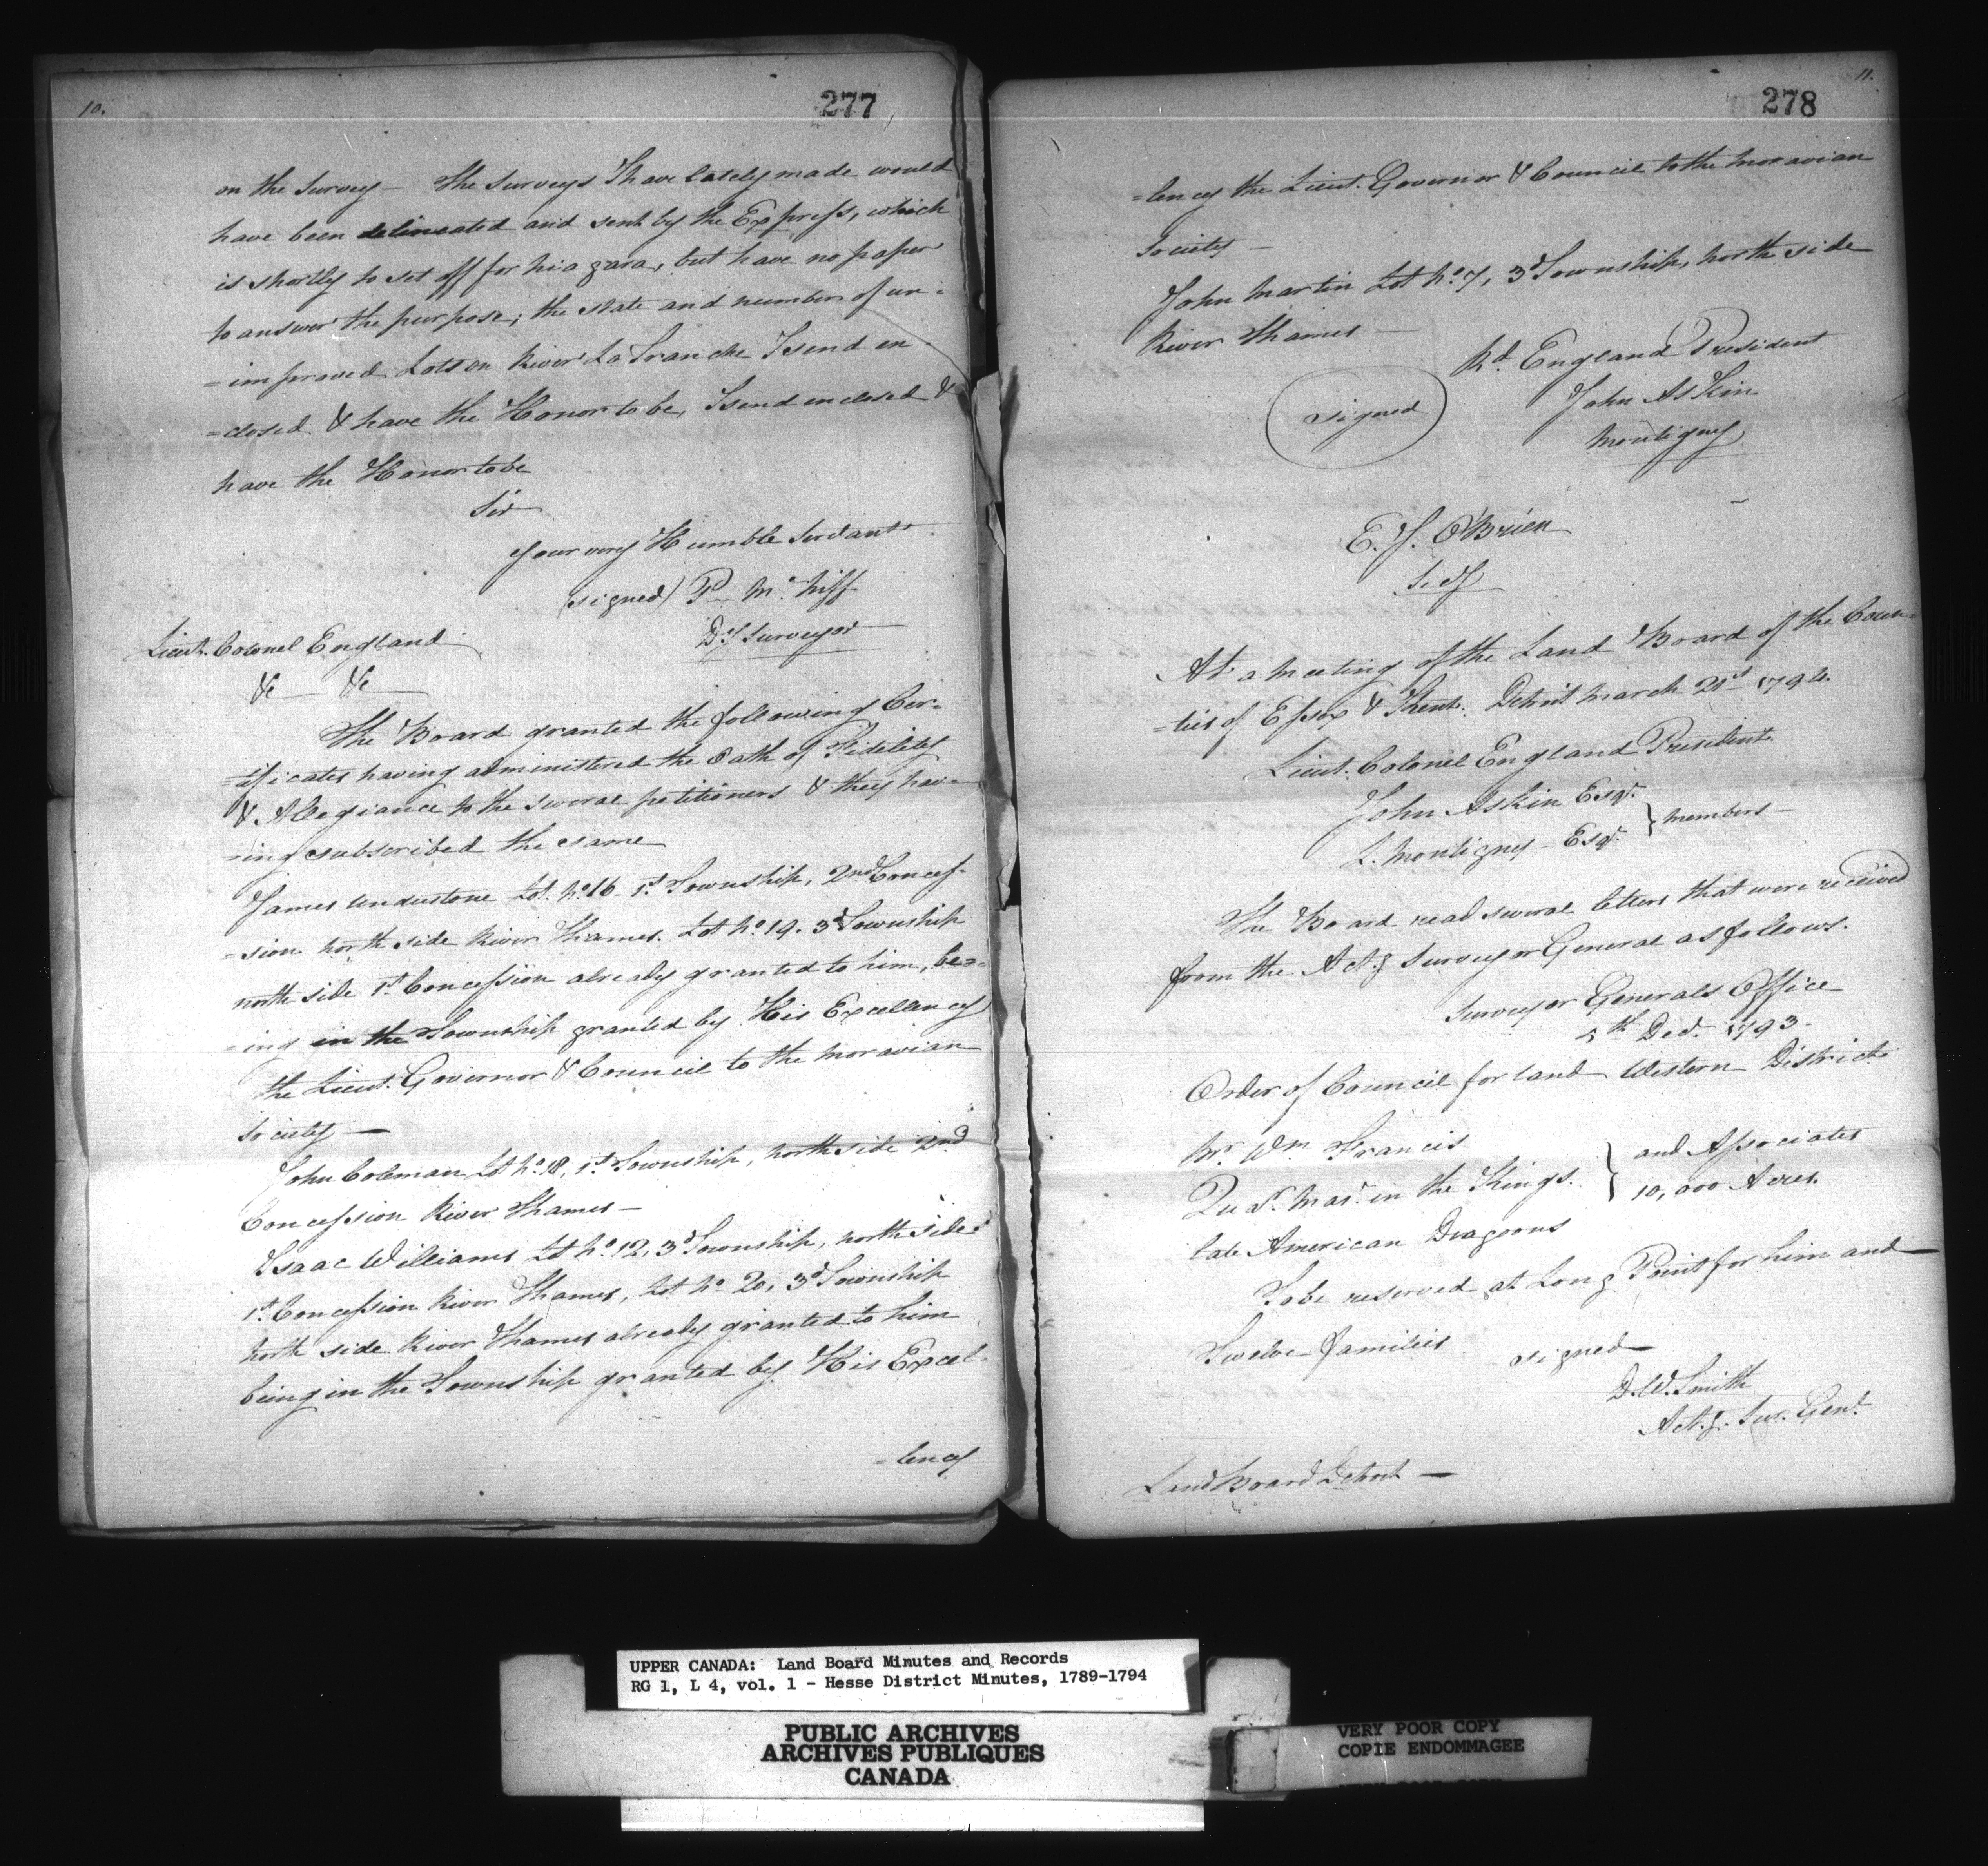 10.
277
on the Survey - The Surveys I have lately made would
have been delineated and sent by the Express, which
is shortly to set off for Niagara, but have no paper
to answer the purpose; the state and number of un-
=improved Lots on River La Tranche I send en-
=closed & have the Honor to be, I send enclosed &
have the Honor to be
Sir
your very Humble Servant
(signed) P. McNiff
Dy Surveyor
Lieut. Colonel England
&c &c
The Board granted the following Cer=
=tificates having administered the Oath of Fidelity
& Allegiance to the several petitioners & they hav=
=ing subscribed the same
James Lot No. 16 1st Township, 2nd Conces-
=sion north side River Thames. Lot No. 19. 3d Township
north side 1st Concession already granted to him, be=
=ing in the Township granted by His Excellency
the Lieut. Governor & Council to the Moravian
Society —
John Coleman Lot No. 18, 1st Township, north side 2nd
Concession River Thames —
Isaac Williams Lot No. 12, 3d Township, north side
1st Concession River Thames, Lot No. 20, 3d Township
North side River Thames already granted to him
being in the Township granted by His Excel-
=lency
11.
278
=lency the Lieut. Governor & Council to the Moravian
Society —
John Martin Lot No. 7, 3d Township, north side
River Thames —
Rd. England President
signed
John Askin
Montigny
E. J. O'Brien
Secy
At a meeting of the Land Board of the Coun-
=ties of Essex & Kent. Detroit March 21st 1794.
Lieut. Colonel England President
John Askin Esqr.
L. Montigny - Esqr. } Members —
The Board read several letters that were received
from the Actg Surveyor General as follows.
Surveyor Generals Office
5th Decr. 1793 -
Order of Council for land Western District
Mr. Wm Francis
Qur. Mas. in the Kings } and Associates
late American Dragoons 10,000 Acres.
To be reserved at Long Point for him and
Twelve families
signed
D.W. Smith
Actg. Sur. Genl.
Land Board Detroit —
UPPER CANADA: Land Board Minutes and Records
RG 1, L 4, vol. 1 - Hesse District Minutes, 1789-1794
PUBLIC ARCHIVES
ARCHIVES PUBLIQUES
CANADA
VERY POOR COPY
COPIE ENDOMMAGEE